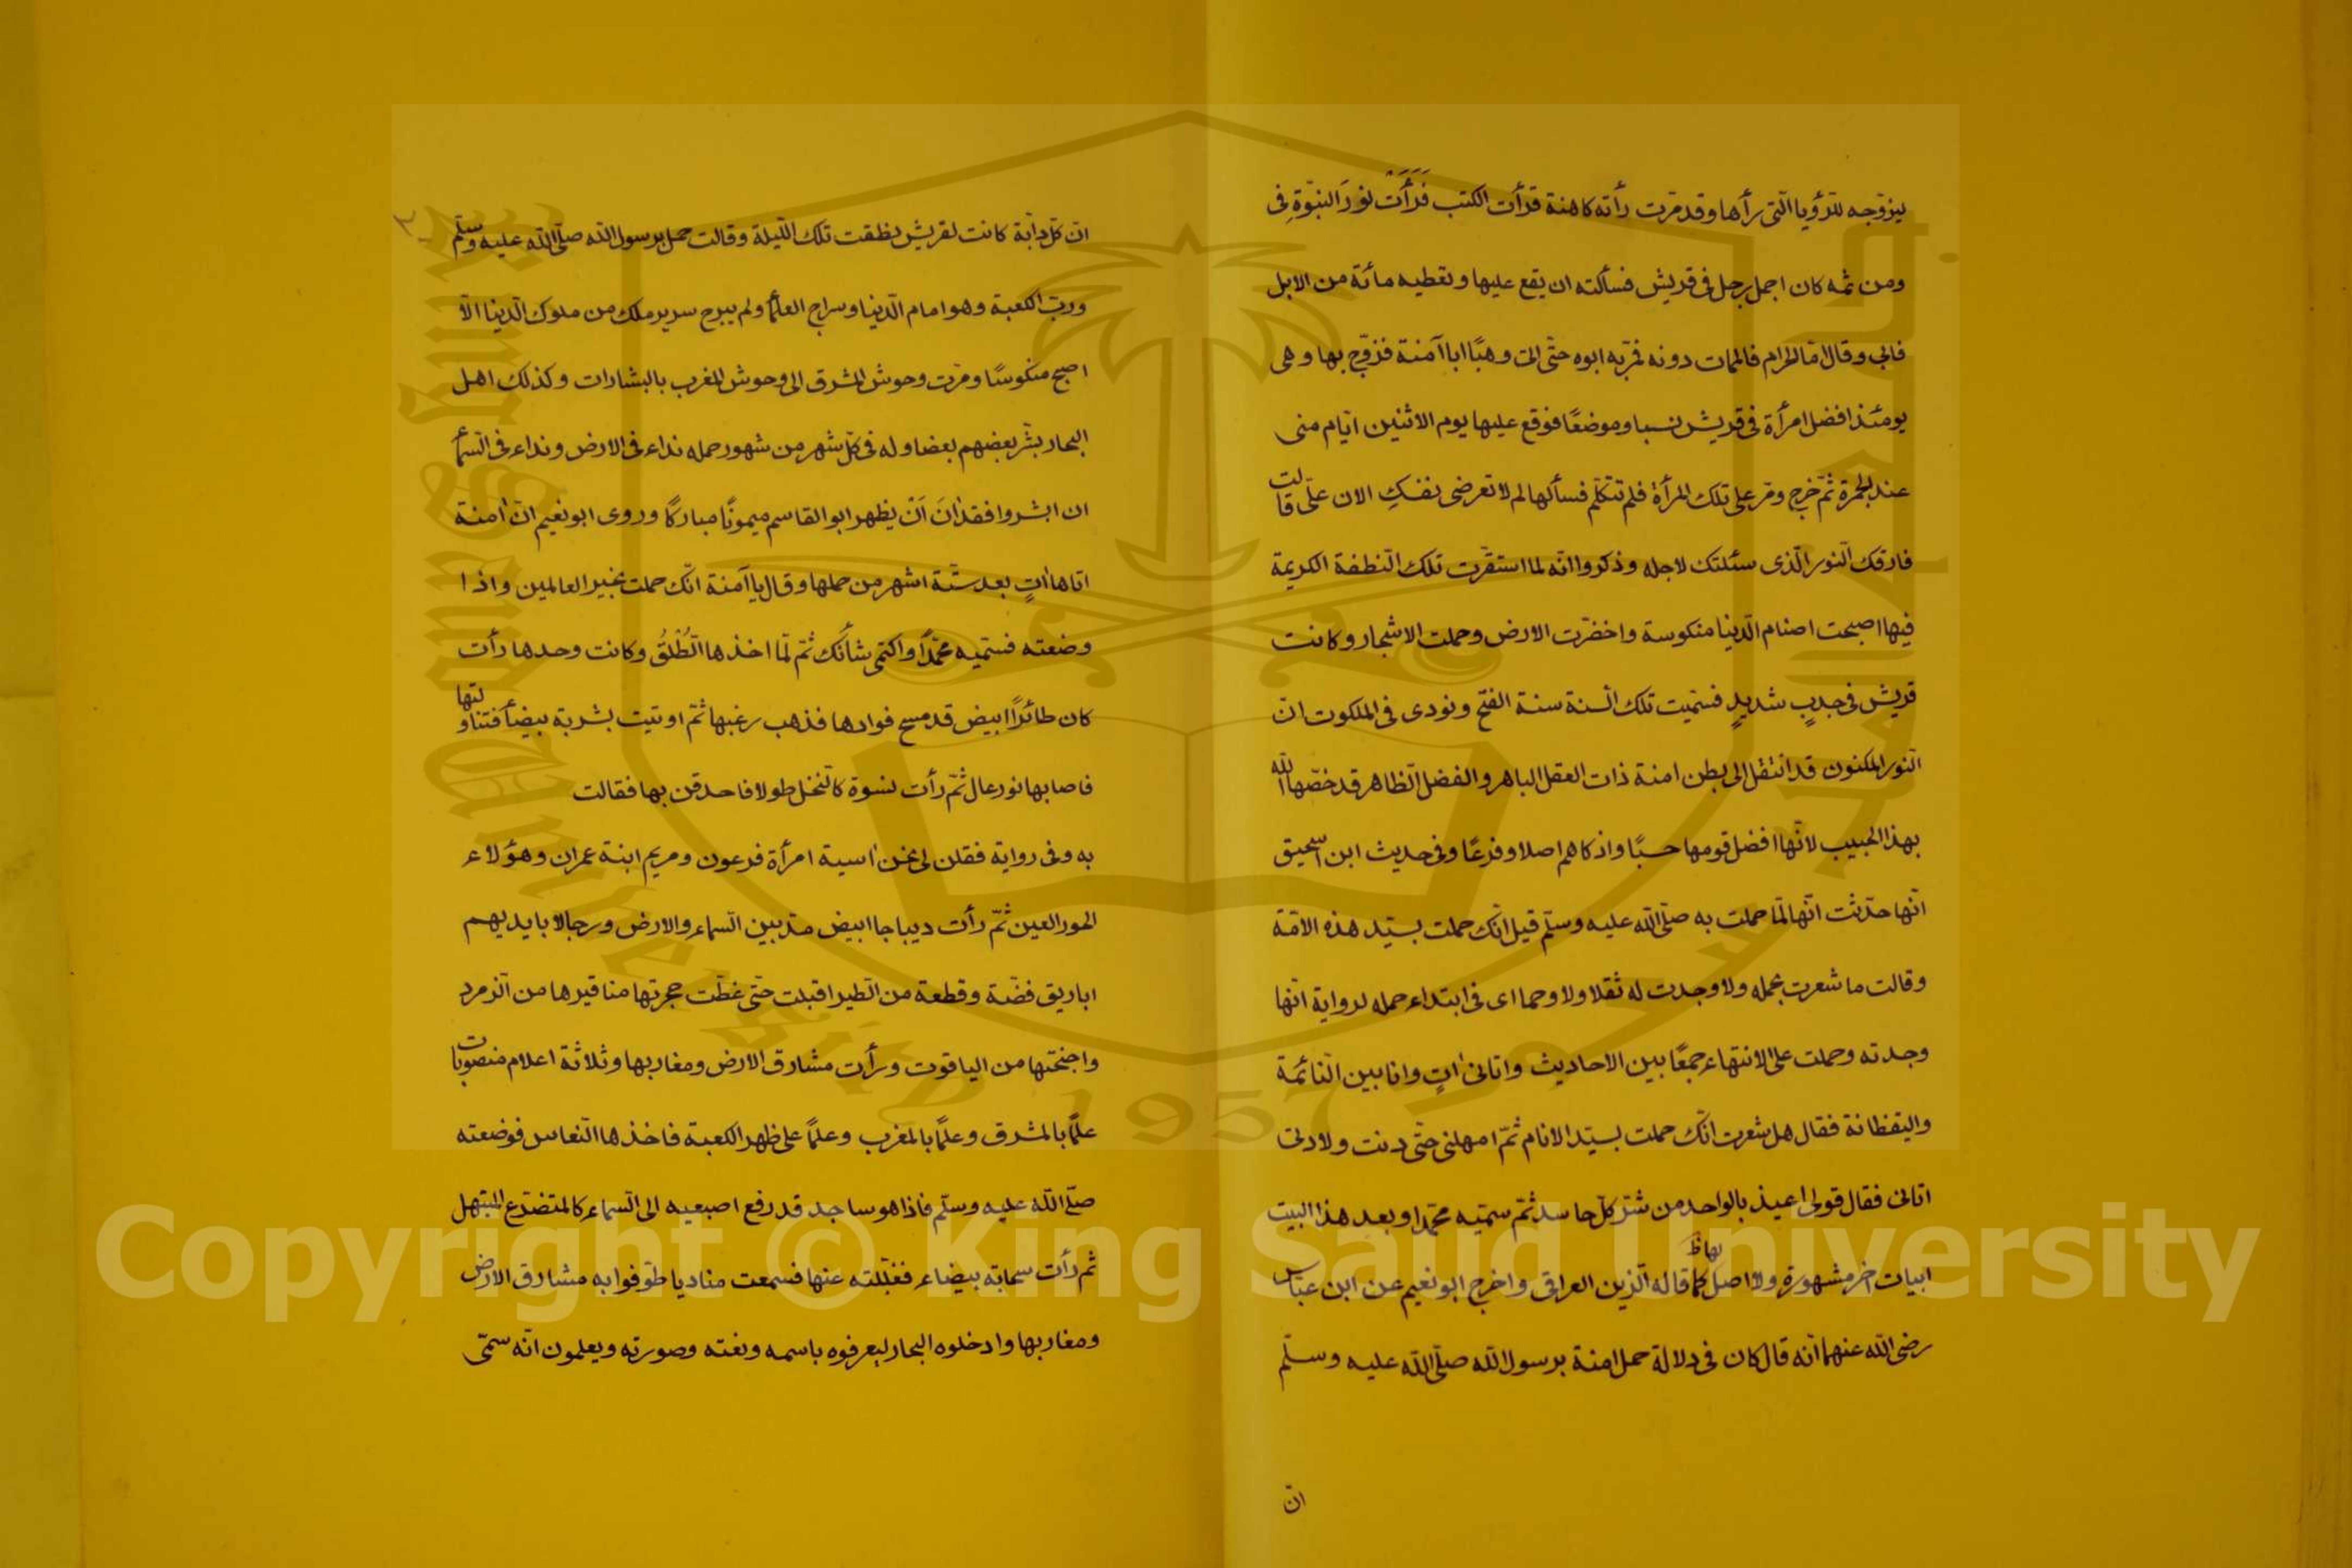 ليزوجه للرؤيا التى رأها وقد مرت رأته كاهنة قرأت الكتب فَرَأَتْ نورَ النبوّةِ فى
ومن ثمه كان اجمل رجل فى قريش فسألته ان يقع عليها وتعطيه مائة من الابل
فابى وقال امّا الحرام فالممات دونه فمرّ به ابوه حتّى اتى وهبًا ابا آمنة فزوّج بها وهى
يومئذ افضل امرأة فى قريش نسبا وموضعًا فوقع عليها يوم الاثنين ايّام منى
عند الجمرة ثمّ خرج ومرّ على تلك المرأة فلم تتكلّم فسألها لم لا تعرضى نفسكِ الان علىّ قالت
فارقك النّور الّذى سئلتك لاجله وذكروا انّه لما استقرّت تلك النّطفة الكريمة
فيها اصبحت اصنام الّدنيا منكوسة واخضرّت الارض وحملت الاشجار وكانت
قريش فى جدبٍ شديدٍ فسمّيت تلك السّنة سنة الفتح ونودى فى الملكوت انّ
النّور المكنون قد انتقل الى بطن امنة ذات العقل الباهر والفضل الّظاهر قد خصّها اللّه
بهذا الحبيب لانّها افضل قومها حسبًا واذكاهم اصلا وفرعًا وفى حديث ابن اسحيق
انّها حدّثت انّها لمّا حملت به صلّى اللّه عليه وسلّم قيل انّك حملت بسيّد هذه الامّة
وقالت ما شعرت بحمله ولا وجدت له ثقلا ولا وحما اى فى ابتداء حمله لرواية انّها
وجدته وحملت على الانتهاء جمعًا بين الاحاديث واتانى اٰتٍ وانا بين النّائمة
واليقظانة فقال هل شعرت انّك حملت بسيّد الانام ثمّ امهلنى حتّى دنت ولادتى
اتانى فقال قولى اعيذ بالواحد من شرّ كلّ حاسد ثمّ سمّيه محمّدا وبعد هذا البيت
ابيات اخر مشهورة ولا اصل بها كما قاله الّزين العراقى واخرج ابو نعيم عن ابن عبّاس
رضى اللّه عنهما انّه قال كان فى دلالة حمل امنة برسول اللّه صلّى اللّه عليه وسلّم
انّ
انّ كلّ دابّة كانت لقريش نطقت تلك اللّيلة وقالت حمل برسول اللّه صلّى اللّه عليه وسلّم
وربّ الكعبة وهو امام الّدنيا وسراج العلمأ ولم يبرح سرير ملك من ملوك الّدنيا الّا
اصبح منكوسًا ومرّت وحوش المشرق الى وحوش المغرب بالبشارات وكذلك اهل
البحار بشّر بعضهم بعضا وله فى كلّ شهر من شهور حمله نداء فى الارض ونداء فى السّمأ
ان ابشروا فقد اٰنَ اَنْ يظهر ابو القاسم ميمونًا مباركًا وروى ابو نعيم انّ اٰمنة
اتاها اٰتٍ بعد ستّة اشهر من حملها وقال يا آمنة انّك حملت بخير العالمين واذا
وضعته فسمّيه محمّدًا واكتمى شأنَك ثمّ لمّا اخذها الّطْلقُ وكانت وحدها رأت
كان طائرًا ابيض قد مسح فوادها فذهب رغبها ثمّ اوتيت بشربة بيضأ فتناولتها
فاصابها نور عال ثمّ رأت نسوة كالنّخل طولا فاحدقن بها فقالت
به وفى رواية فقلن لى نحن اٰسية امرأة فرعون ومريم ابنة عمران وهؤلاء
الحور العين ثمّ رأت ديباجا ابيض مدّ بين السّماء والارض ورجالا بايديهم
اباريق فضّة وقطعة من الّطير اقبلت حتّى غطّت حجرتها مناقيرها من الّزمرد
واجنحتها من الياقوت ورأت مشارق الارض ومغاربها وثلاثة اعلام منصوبات
علمًا بالمشرق وعلمًا بالمغرب وعلمًا على ظهر الكعبة فاخذها النّفاس فوضعته
صلّى اللّه عليه وسلّم فاذا هو ساجد قد رفع اصبعيه الى السّماء كالمتضرّع المبتهل
ثم رأت سحابة بيضاء فغيّبته عنها فسمعت مناديا طوّفوا به مشارق الارض
ومغاربها وادخلوه البحار ليعرفوه باسمه ونعته وصورته ويعلمون انّه سمّى
King Saud University
1957
Copyright © King Saud University